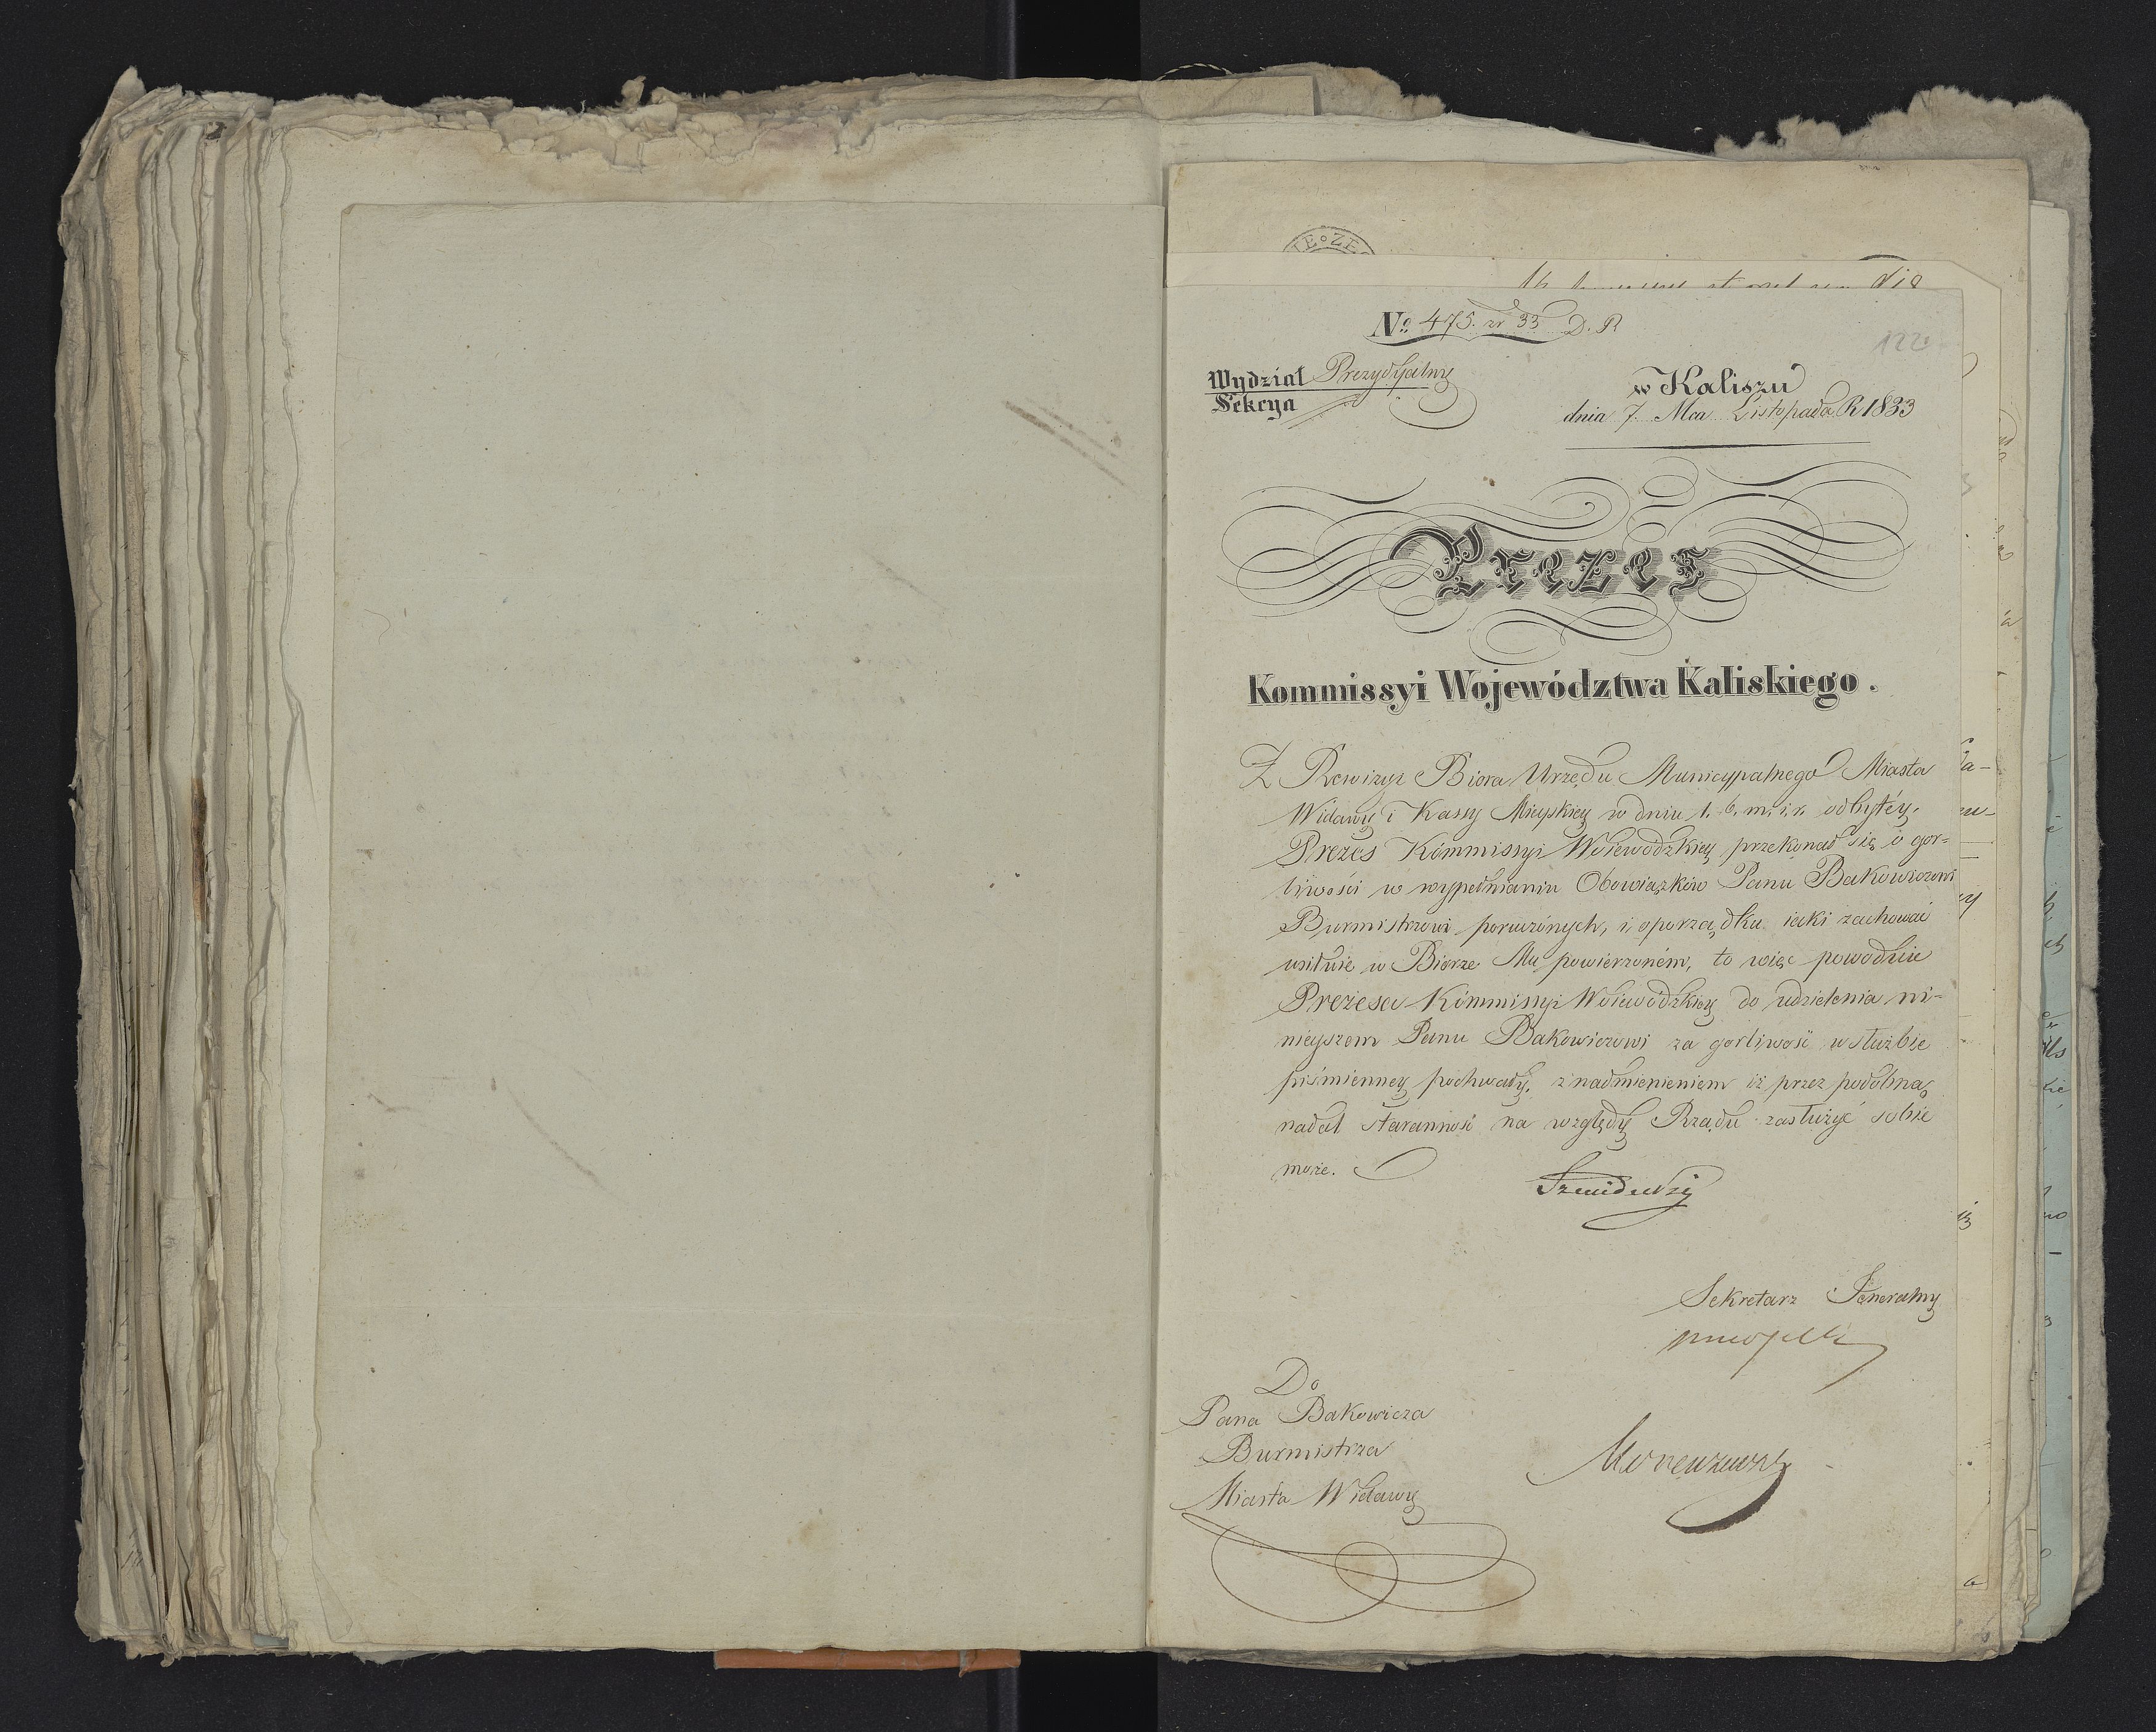 № 475. zr 33 D. P.
122
Wydział Prezydyalny
Sekcya
w Kaliszu
dnia 7. Mca Listopada R 1833
Prezes
Kommissyi Województwa Kaliskiego.
Z Rewizyi Biora Urzędu Municypalnego Miasta
Widawy i Kassy Mieyskiey w dniu 1. b. m. i. r. odbytéy.
Prezes Kommissyi Woiewódzkiey przekonał się o gor=
liwości w wypełnianiu Obowiązków Panu Bakowiczowi
Burmistrzowi poruczonych, i o porządku iaki zachować
usiłuie w Biorze Mu powierzoném, to więc powoduie
Prezesa Kommissyi Woiewódzkiey do udzielenia ni-
nieyszem Panu Bakowiczowi za gorliwość w służbie
piśmienney pochwały, z nadmienieniem iż przez podobną
nadal staranność na względy Rządu zasłużyć sobie
może.
Sekretarz Jeneralny
Do
Pana Bakowicza
Burmistrza
Miasta Widawy